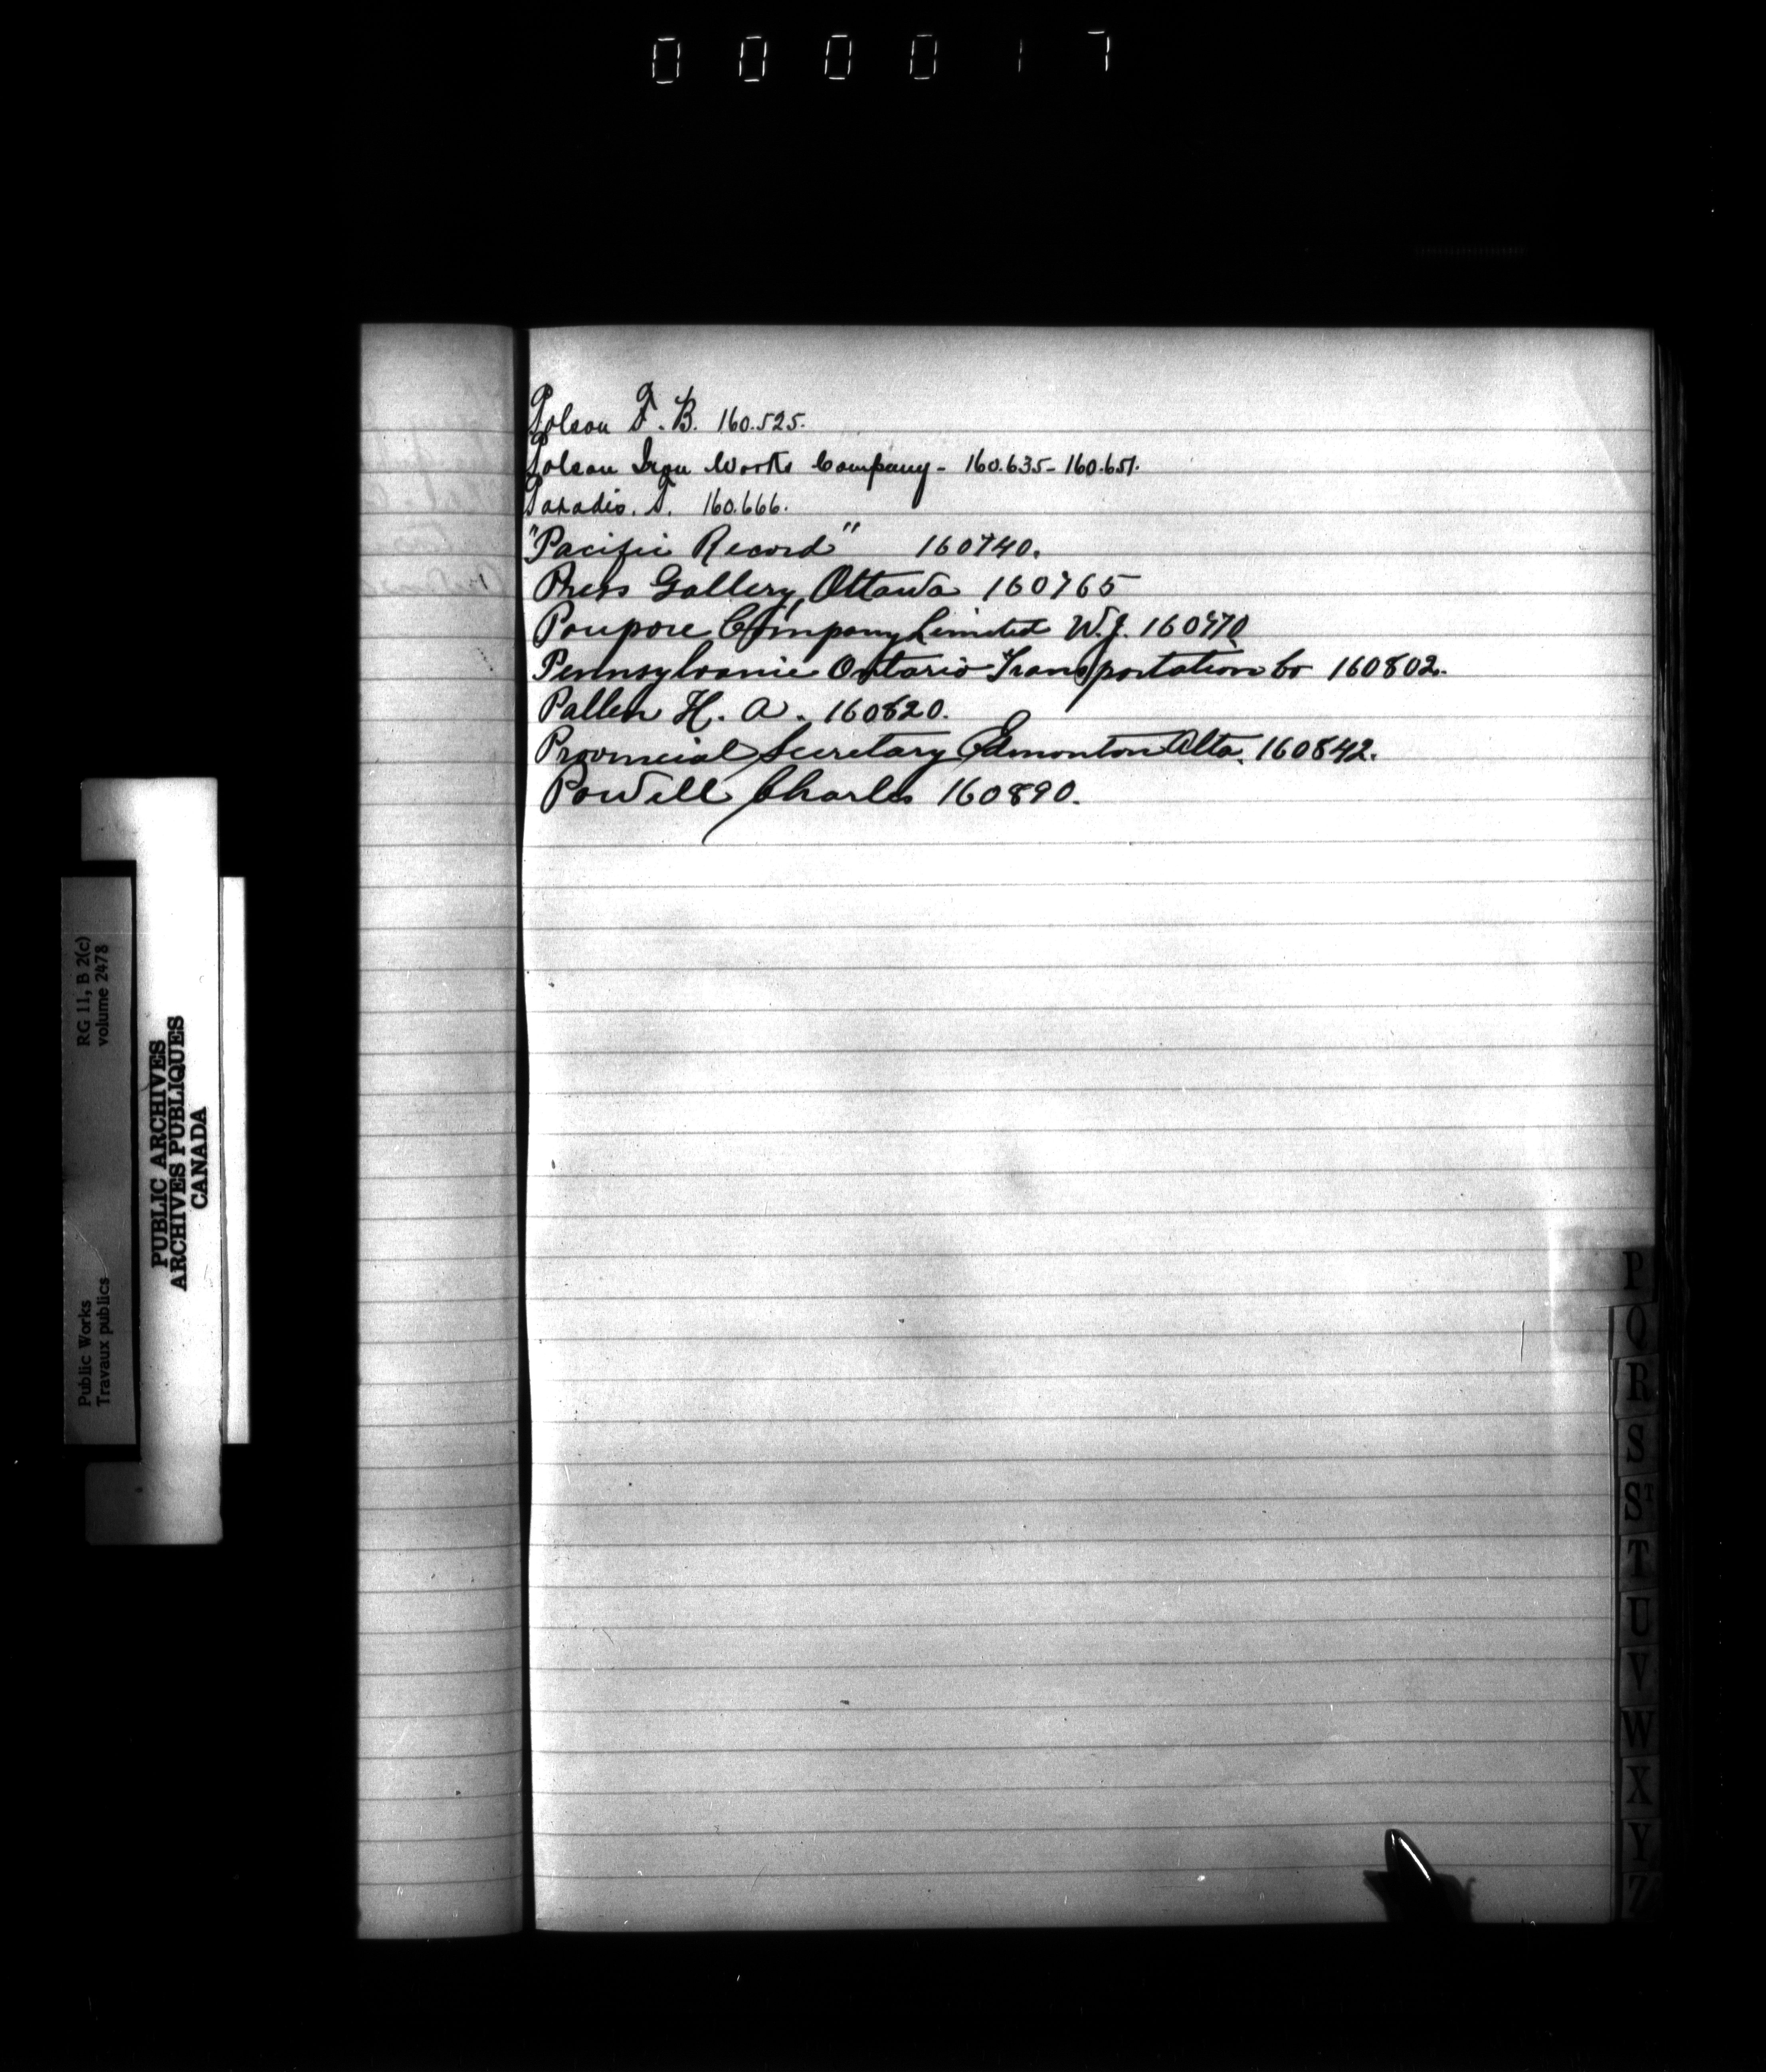 000017
Polson F. B. 160.525.
Polson Iron Works Company - 160.635 - 160.651.
Paradis. T. 160.666.
"Pacific Record" 160740.
Press Gallery, Ottawa 160765
Poupore Company Limited W.J. 160770
Pennsylvania Ontario Transportation Co 160802.
Pallen H. A. 160820.
Provincial Secretary Edmonton Alta. 160842.
Powell Charles 160890.
RG 11, B 2(c)
volume 2478
Public Works
Travaux publics
PUBLIC ARCHIVES
ARCHIVES PUBLIQUES
CANADA
P
Q
R
S
ST
T
U
V
W
X
Y
Z